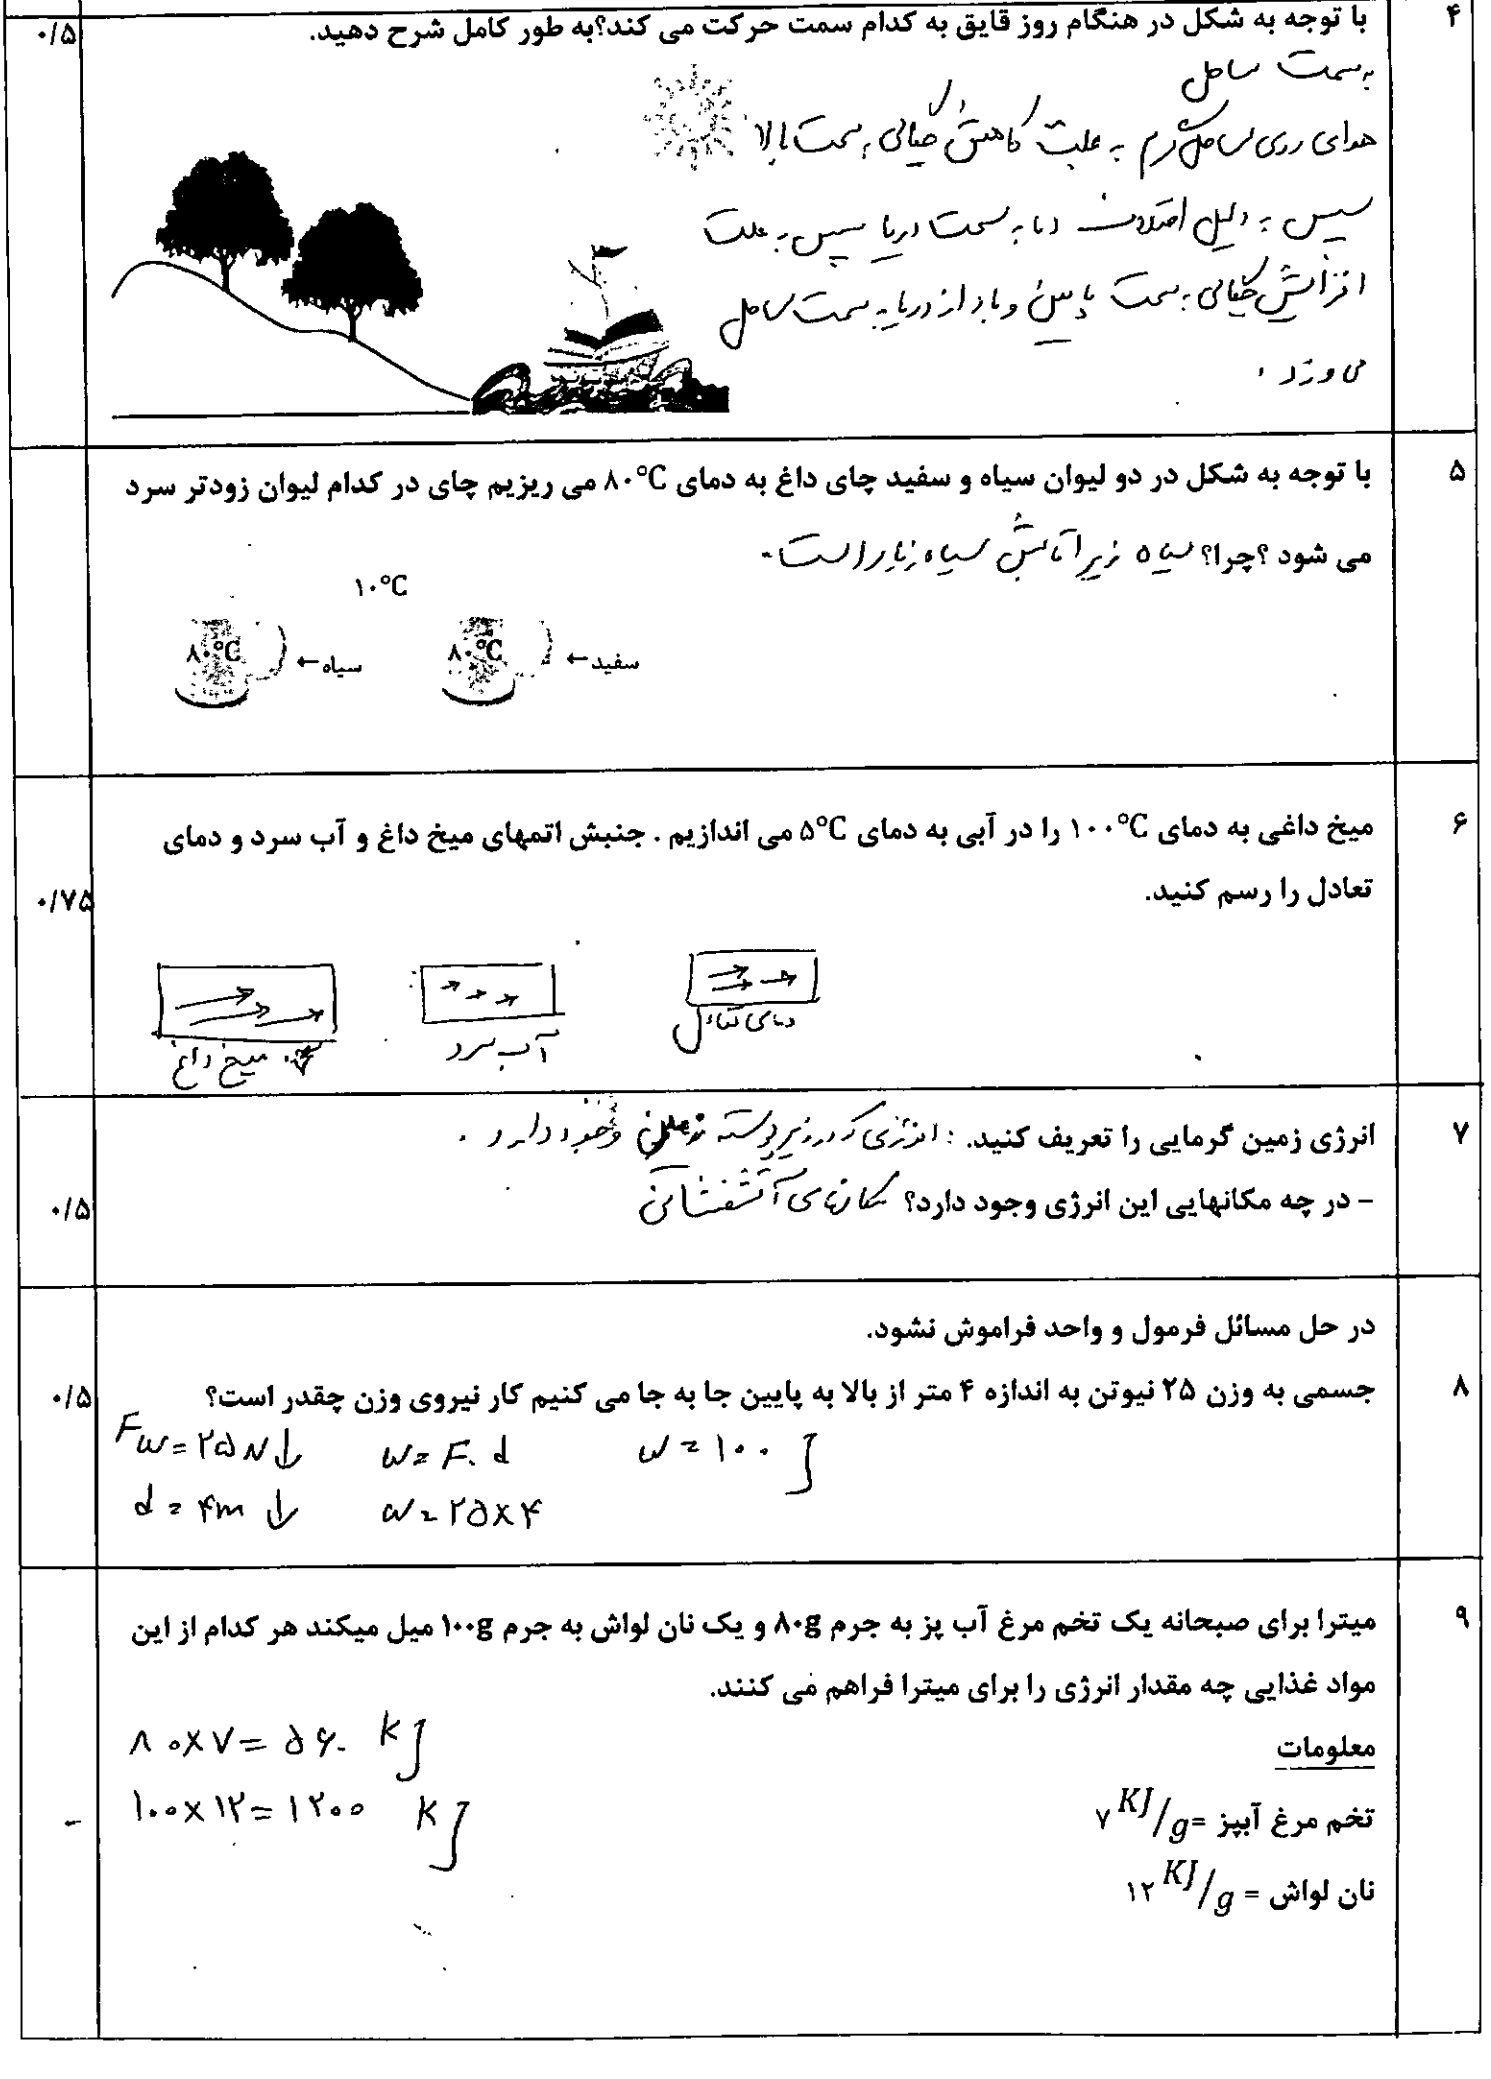 ۴
با توجه به شکل در هنگام روز قایق به کدام سمت حرکت می کند؟به طور کامل شرح دهید.
۰/۵
به سمت ساحل
هوای روی ساحل گرم به علت کاهش چگالی به سمت بالا
سپس به دلیل اختلاف دما به سمت دریا سپس به علت
افزایش چگالی به سمت پایین و باد از دریا به سمت ساحل
می وزد .
۵
با توجه به شکل در دو لیوان سیاه و سفید چای داغ به دمای ۸۰°C می ریزیم چای در کدام لیوان زودتر سرد
می شود ؟چرا؟ سیاه زیرا تابش سیاه زیادتر است.
۱۰°C
۸۰°C سیاه← ۸۰°C سفید←
۶
میخ داغی به دمای ۱۰۰°C را در آبی به دمای ۵°C می اندازیم . جنبش اتمهای میخ داغ و آب سرد و دمای
تعادل را رسم کنید.
۰/۷۵
میخ داغ آب سرد دمای تعادل
۷
انرژی زمین گرمایی را تعریف کنید. : انرژی که در زیر پوسته زمین وجود دارد .
- در چه مکانهایی این انرژی وجود دارد؟ مکانهای آتشفشانی
۰/۵
در حل مسائل فرمول و واحد فراموش نشود.
۸
جسمی به وزن ۲۵ نیوتن به اندازه ۴ متر از بالا به پایین جا به جا می کنیم کار نیروی وزن چقدر است؟
۰/۵
Fw = ۲۵ N ↓ W = F. d W = ۱۰۰ J
d = ۴m ↓ W = ۲۵×۴
۹
میترا برای صبحانه یک تخم مرغ آب پز به جرم ۸۰g و یک نان لواش به جرم ۱۰۰g میل میکند هر کدام از این
مواد غذایی چه مقدار انرژی را برای میترا فراهم می کنند.
معلومات
۸۰×۷= ۵۶۰ kJ
تخم مرغ آبپز =۷ KJ/g
۱۰۰×۱۲= ۱۲۰۰ kJ
نان لواش = ۱۲ KJ/g